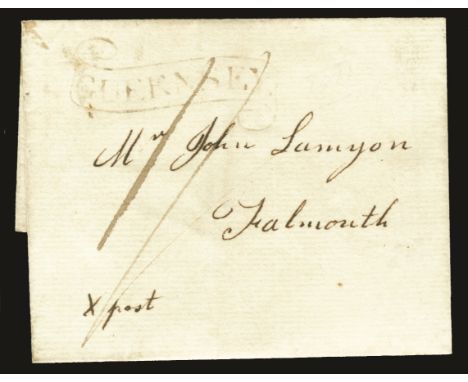 GUERNSEY
Mr John Lamyon
Falmouth
X post